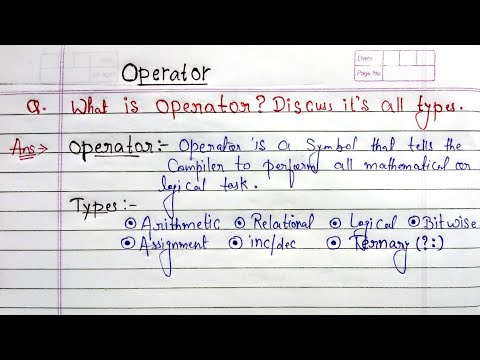 Date
Page No.
Operator
Q. What is Operator? Discuss it's all types.
Ans→ Operator:- Operator is a Symbol that tells the
Compiler to perform all mathematical or
logical task.
Types:-
⊙ Arithmetic ⊙ Relational ⊙ Logical ⊙ Bitwise
⊙ Assignment ⊙ inc/dec ⊙ Ternary (?:)